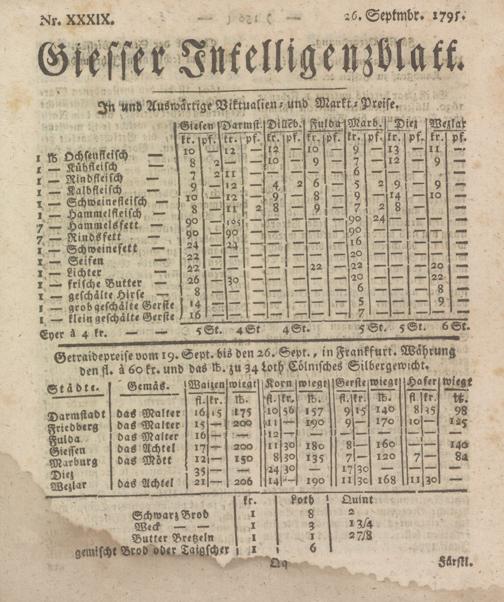 Nr. XXXIX. 26. Septmbr. 1795.
Giesser Intelligenzblatt.
In und Auswärtige Viktualien- und Markt-Preise.
Giesen Darmst. Dillćb. Fulda Marb. Diez Wezlar
kr. pf. kr. pf. kr. pf. kr. pf. kr. pf. kr. pf. kr. pf.
1 ℔ Ochsenfleisch — 10 — 12 — 12 — 10 — 9 — 13 — 11 —
1 — Kühfleisch — 8 2 — — 10 — 9 — 7 — 12 — 9 —
1 — Rindfleisch — 7 2 11 — — — — — 6 — — — — —
1 — Kalbfleisch — 9 — 12 — 4 2 6 — 5 2 9 — 9 —
1 — Schweinefleisch — 10 — 12 — 9 — 8 — 9 — 14 — 10 —
1 — Hammelfleisch — 8 — 11 2 8 — 9 — 7 2 8 — — —
7 — Hammelsfett — 90 — 105 — — — — — 90 — 24 — — —
7 — Rindsfett — 90 — 90 — — — — — 90 — — — — —
1 — Schweinefett — 24 — 24 — — — — — 16 — — — — —
1 — Seifen — 22 — — — — — — — 20 — — — — —
1 — Lichter — 22 — — — — — 22 — 22 — — — 20 —
1 — frische Butter — 26 — 30 — — — — — 20 — — — 22 —
1 — geschälte Hirse — 8 — — — — — — — 6 — — — 8 —
1 — grobgeschälte Gerste 14 — — — — — — — 5 — — — 9 —
1 — klein geschälte Gerste 16 — — — — — — — 7 — — — — —
Eyer à 4 kr. — — 5 St. 4 St 4 St. 5 St. 5 St. 6 St.
Getraidepreise vom 19. Sept. bis den 26. Sept., in Frankfurt. Währung
den fl. à 60 kr. und das ℔. zu 34 Loth Cölnisches Silbergewicht.
Städte. Gemäs. Waizen wiegt Korn wiegt Gerste wiegt Hafer wiegt
fl. kr. ℔. fl. kr. ℔. fl. kr. ℔. fl. kr. ℔.
Darmstadt das Malter 16 15 175 10 56 157 9 15 140 8 35 98
Friedberg das Malter 15 — 200 11 — 190 9 — 170 10 — 125
Fulda das Malter 16 — — 12 — — — — — — — —
Giessen das Achtel 17 — 200 11 30 180 8 — 160 — — 140
Marburg das Mött 12 — 150 8 30 135 7 — 120 7 — 82
Diez 35 — — 24 30 — 17 30 — — — —
Wezlar das Achtel 21 — 206 14 — 190 11 30 168 11 30 —
kr. Loth Quint
Schwarz Brod 1 8 2
Weck — — 1 3 1 3/4
Butter Bretzeln 1 1 2 7/8
gemischt Brod oder Taigscher 1 6
Qq Fürstl.